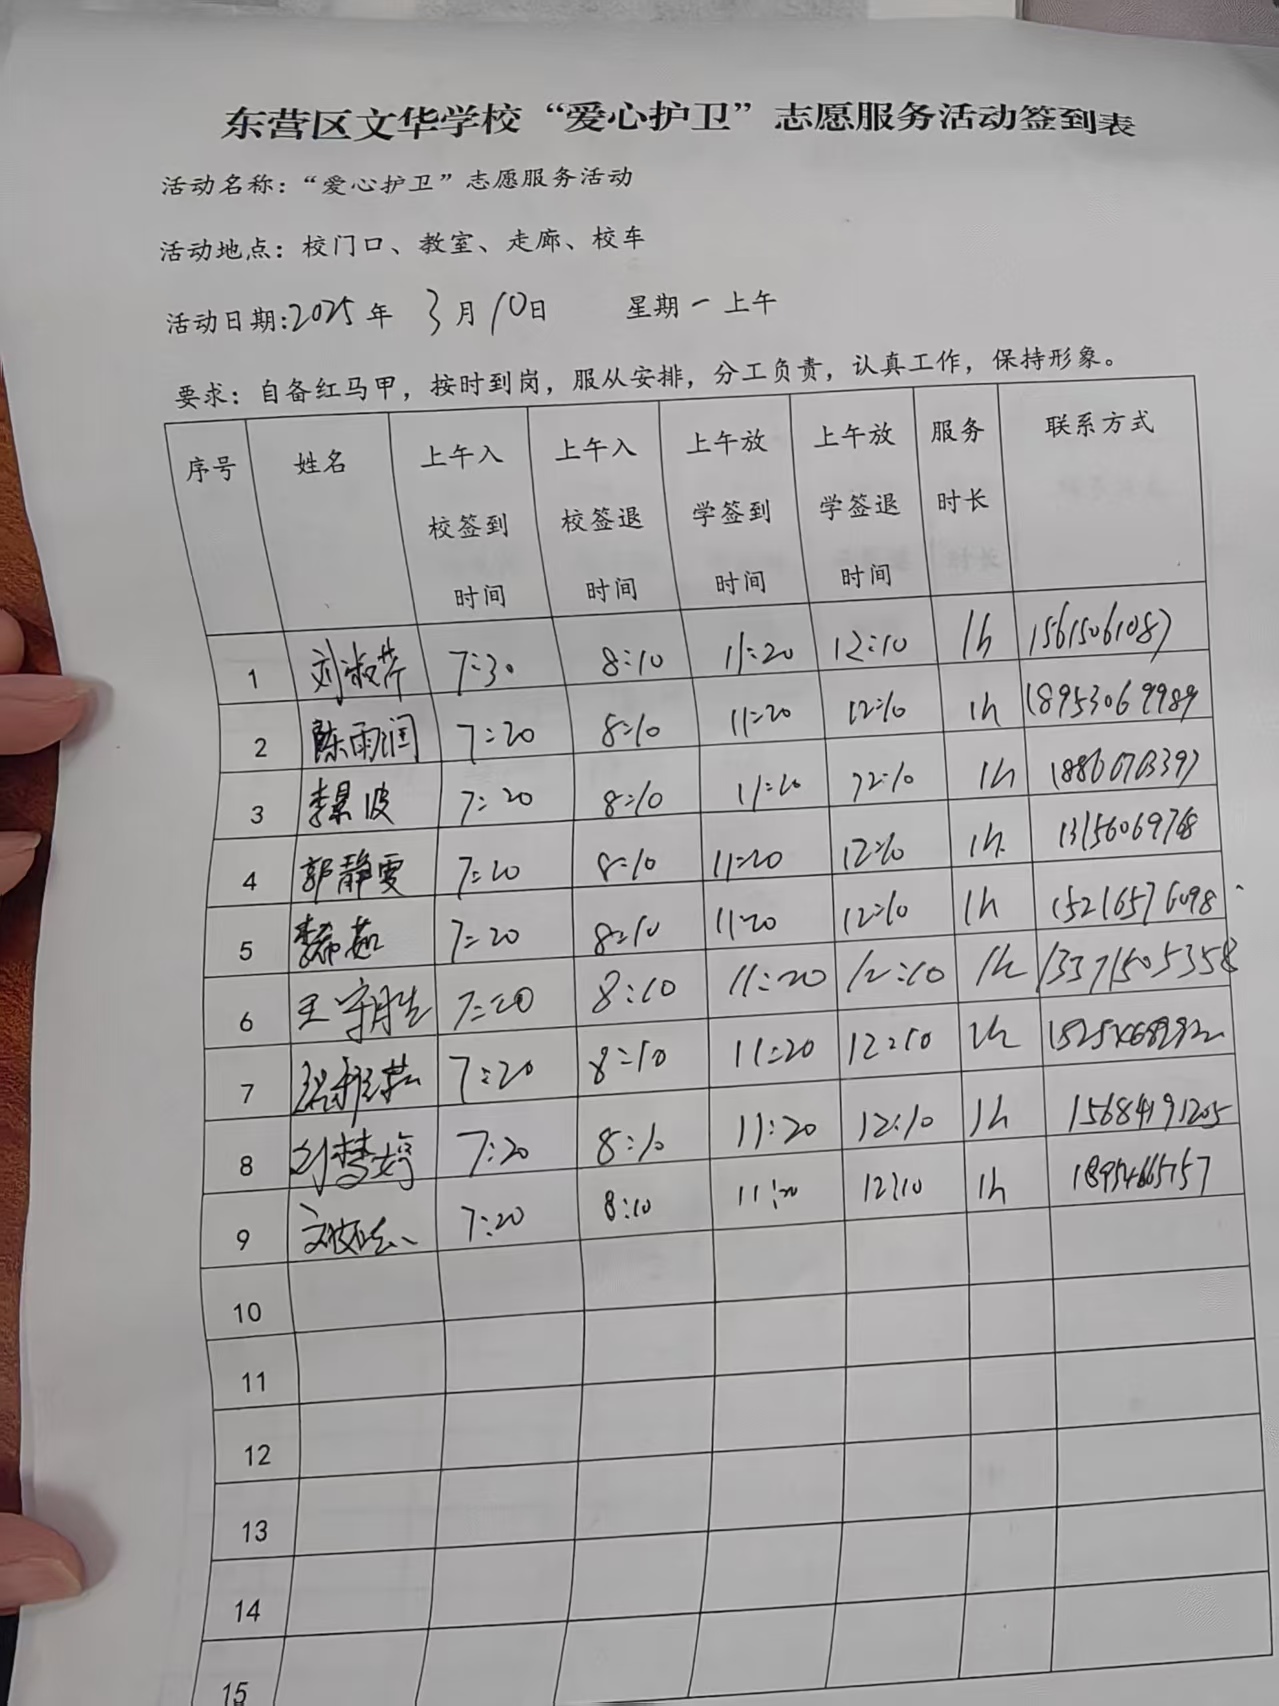 东营区文华学校“爱心护卫”志愿服务活动签到表
活动名称：“爱心护卫”志愿服务活动
活动地点：校门口、教室、走廊、校车
活动日期:2025年 3月10日 星期一上午
要求：自备红马甲，按时到岗，服从安排，分工负责，认真工作，保持形象。
序号 姓名 上午入校签到时间 上午入校签退时间 上午放学签到时间 上午放学签退时间 服务时长 联系方式
1 刘淑芹 7:30 8:10 11:20 12:10 1h 15615061087
2 陈雨润 7:20 8:10 11:20 12:10 1h 18953069989
3 李景波 7:20 8:10 11:20 12:10 1h
4 郭静雯 7:20 8:10 11:20 12:10 1h
5 7:20 8:10 11:20 12:10 1h 15216576098
6 7:20 8:10 11:20 12:10 1h 13371505358
7 7:20 8:10 11:20 12:10
8 刘梦婷 7:20 8:10 11:20 12:10 1h 15684191205
9 7:20 8:10 11:20 12:10 1h
10
11
12
13
14
15